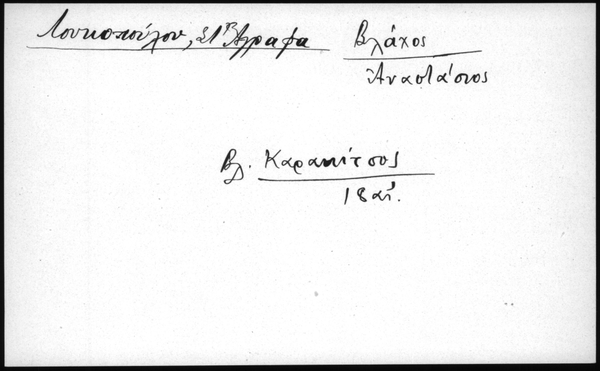 Λουκοπούλου, Στ' Άγραφα
Βλάχος
Αναστάσιος
Βλ. Καρακίτσος
18 αἰ.